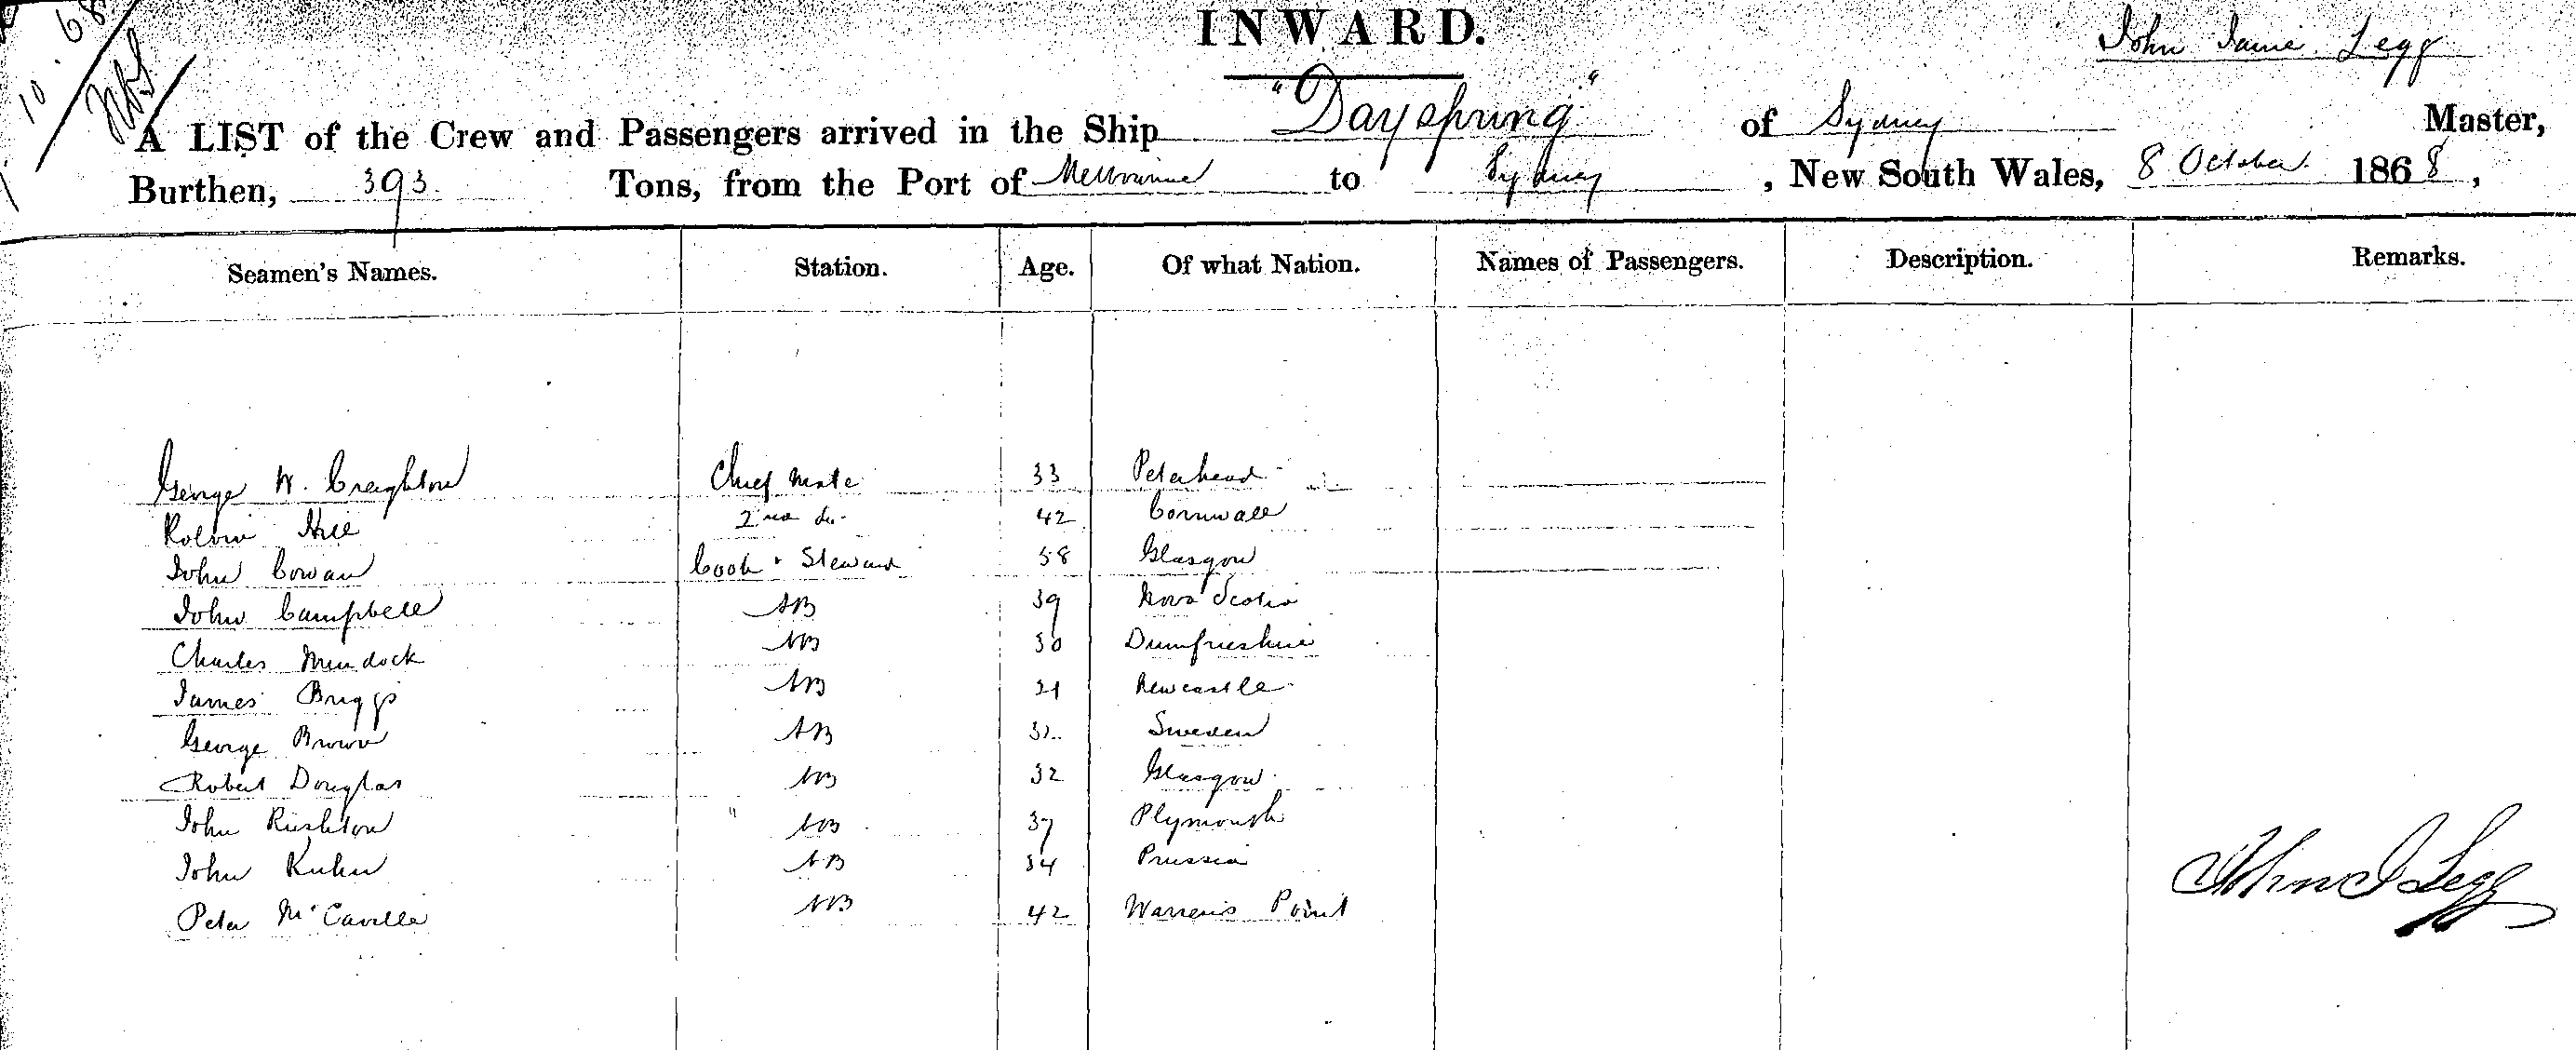 10.68
INWARD.
John Jamie Legg
A LIST of the Crew and Passengers arrived in the Ship "Dayspring" of Sydney Master,
Burthen, 393 Tons, from the Port of Melbourne to Sydney, New South Wales, 8 October 1868,
Seamen's Names. Station. Age. Of what Nation. Names of Passengers. Description. Remarks.
George W. Creighton Chief Mate 33 Peterhead
Hill 2nd do. 42 Cornwall
John Cowan Cook & Steward 38 Glasgow
John Campbell AB 39 Nova Scotia
Charles Murdock AB 30 Dumfrieshire
James Briggs AB 21 Newcastle
George Brown AB 32 Sweden
Robert Douglas AB 32 Glasgow
John Rushton " AB 37 Plymouth
John Kuhn AB 34 Prussia
Peter McCaville AB 42 Warrens Point
John J Legg